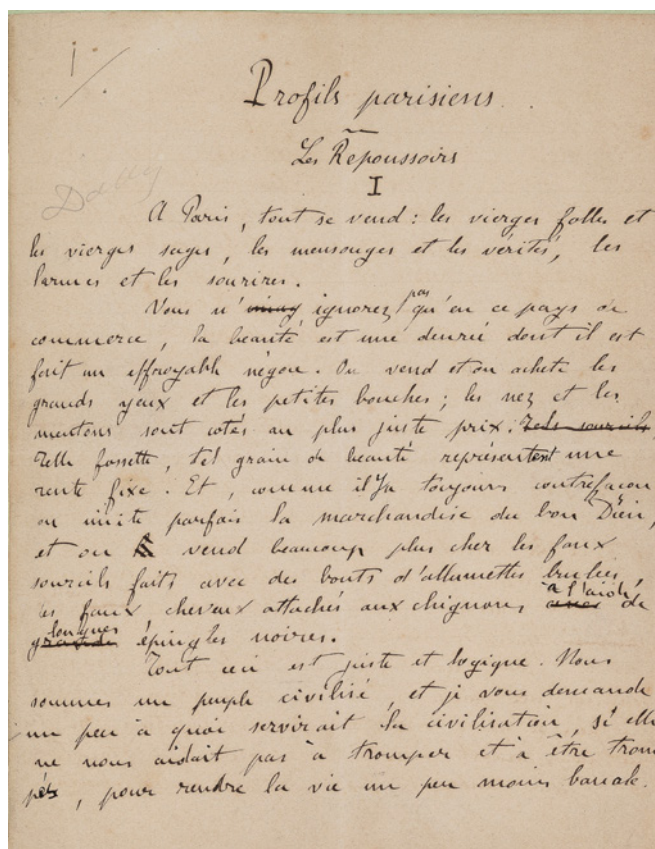 1.
Profils parisiens.
Les Repoussoirs
I
A Paris, tout se vend : les vierges folles et
les vierges sages, les mensonges et les vérités, les
larmes et les sourires.
Vous n' ignorez pas qu'en ce pays de
commerce, la beauté est une denrée dont il est
fait un effroyable négoce. On vend et on achète les
grands yeux et les petites bouches ; les nez et les
mentons sont cotés au plus juste prix. Tels sourcils
Telle fossette, tel grain de beauté représentent une
rente fixe. Et, comme il y a toujours contrefaçon
on imite parfois la marchandise du bon Dieu,
et on vend beaucoup plus cher les faux
sourcils faits avec des bouts d'allumettes brulées,
les faux cheveux attachés aux chignons à l'aide de
longues épingles noires.
Tout ceci est juste et logique. Nous
sommes un peuple civilisé, et je vous demande
un peu à quoi servirait la civilisation, si elle
ne nous aidait pas à tromper et à être trom
pés, pour rendre la vie un peu moins banale.